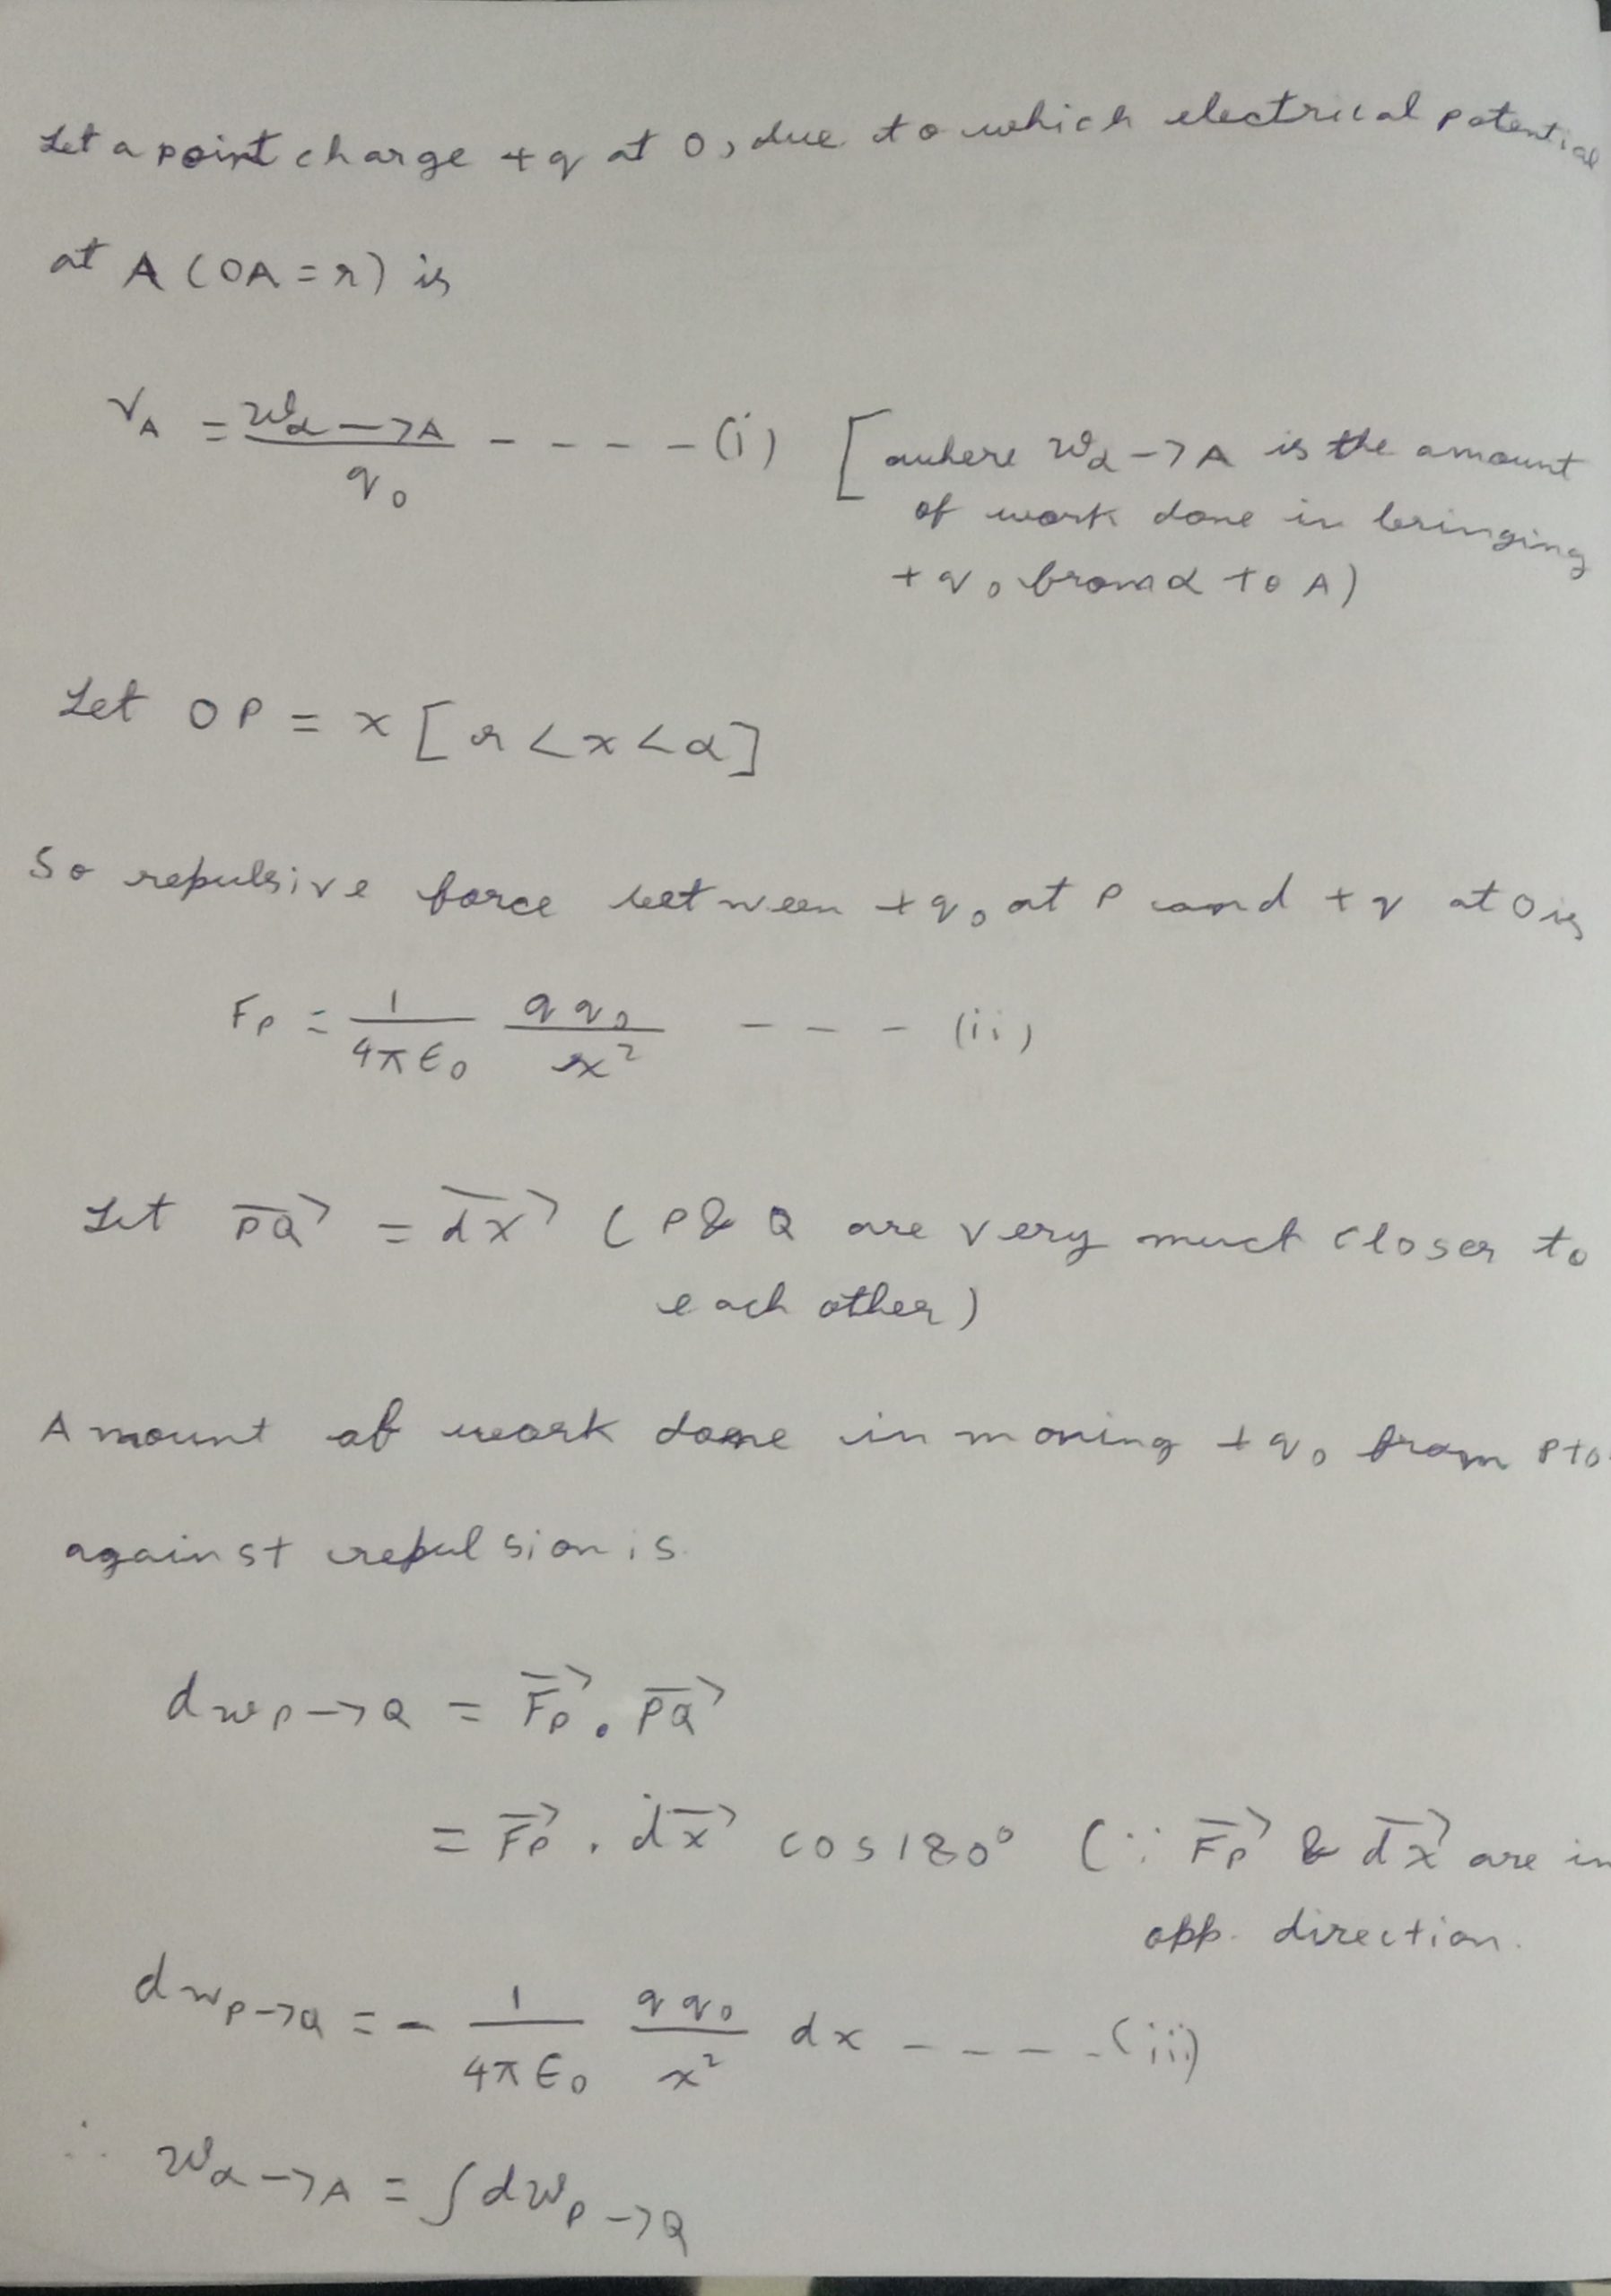 Let a point charge +q at O, due to which electrical potential
at A (OA = r) is
V_A = W_α→A / q_0 - - - - - (i) [where W_α→A is the amount
of work done in bringing
+q_0 from α to A)
Let OP = x [r < x < α]
So repulsive force between +q_0 at P and +q at O is
F_P = 1/4πε_0 qq_0/x² - - - (ii)
Let PQ⃗ = dx⃗ (P & Q are very much closer to
each other)
Amount of work done in moving +q_0 from P to
against repulsion is
dw_P→Q = F_P⃗ . PQ⃗
= F_P⃗ . dx⃗ cos 180° (∵ F_P⃗ & dx⃗ are in
opp. direction.
dw_P→Q = - 1/4πε_0 qq_0/x² dx - - - - - (iii)
∴ W_α→A = ∫dW_P→Q